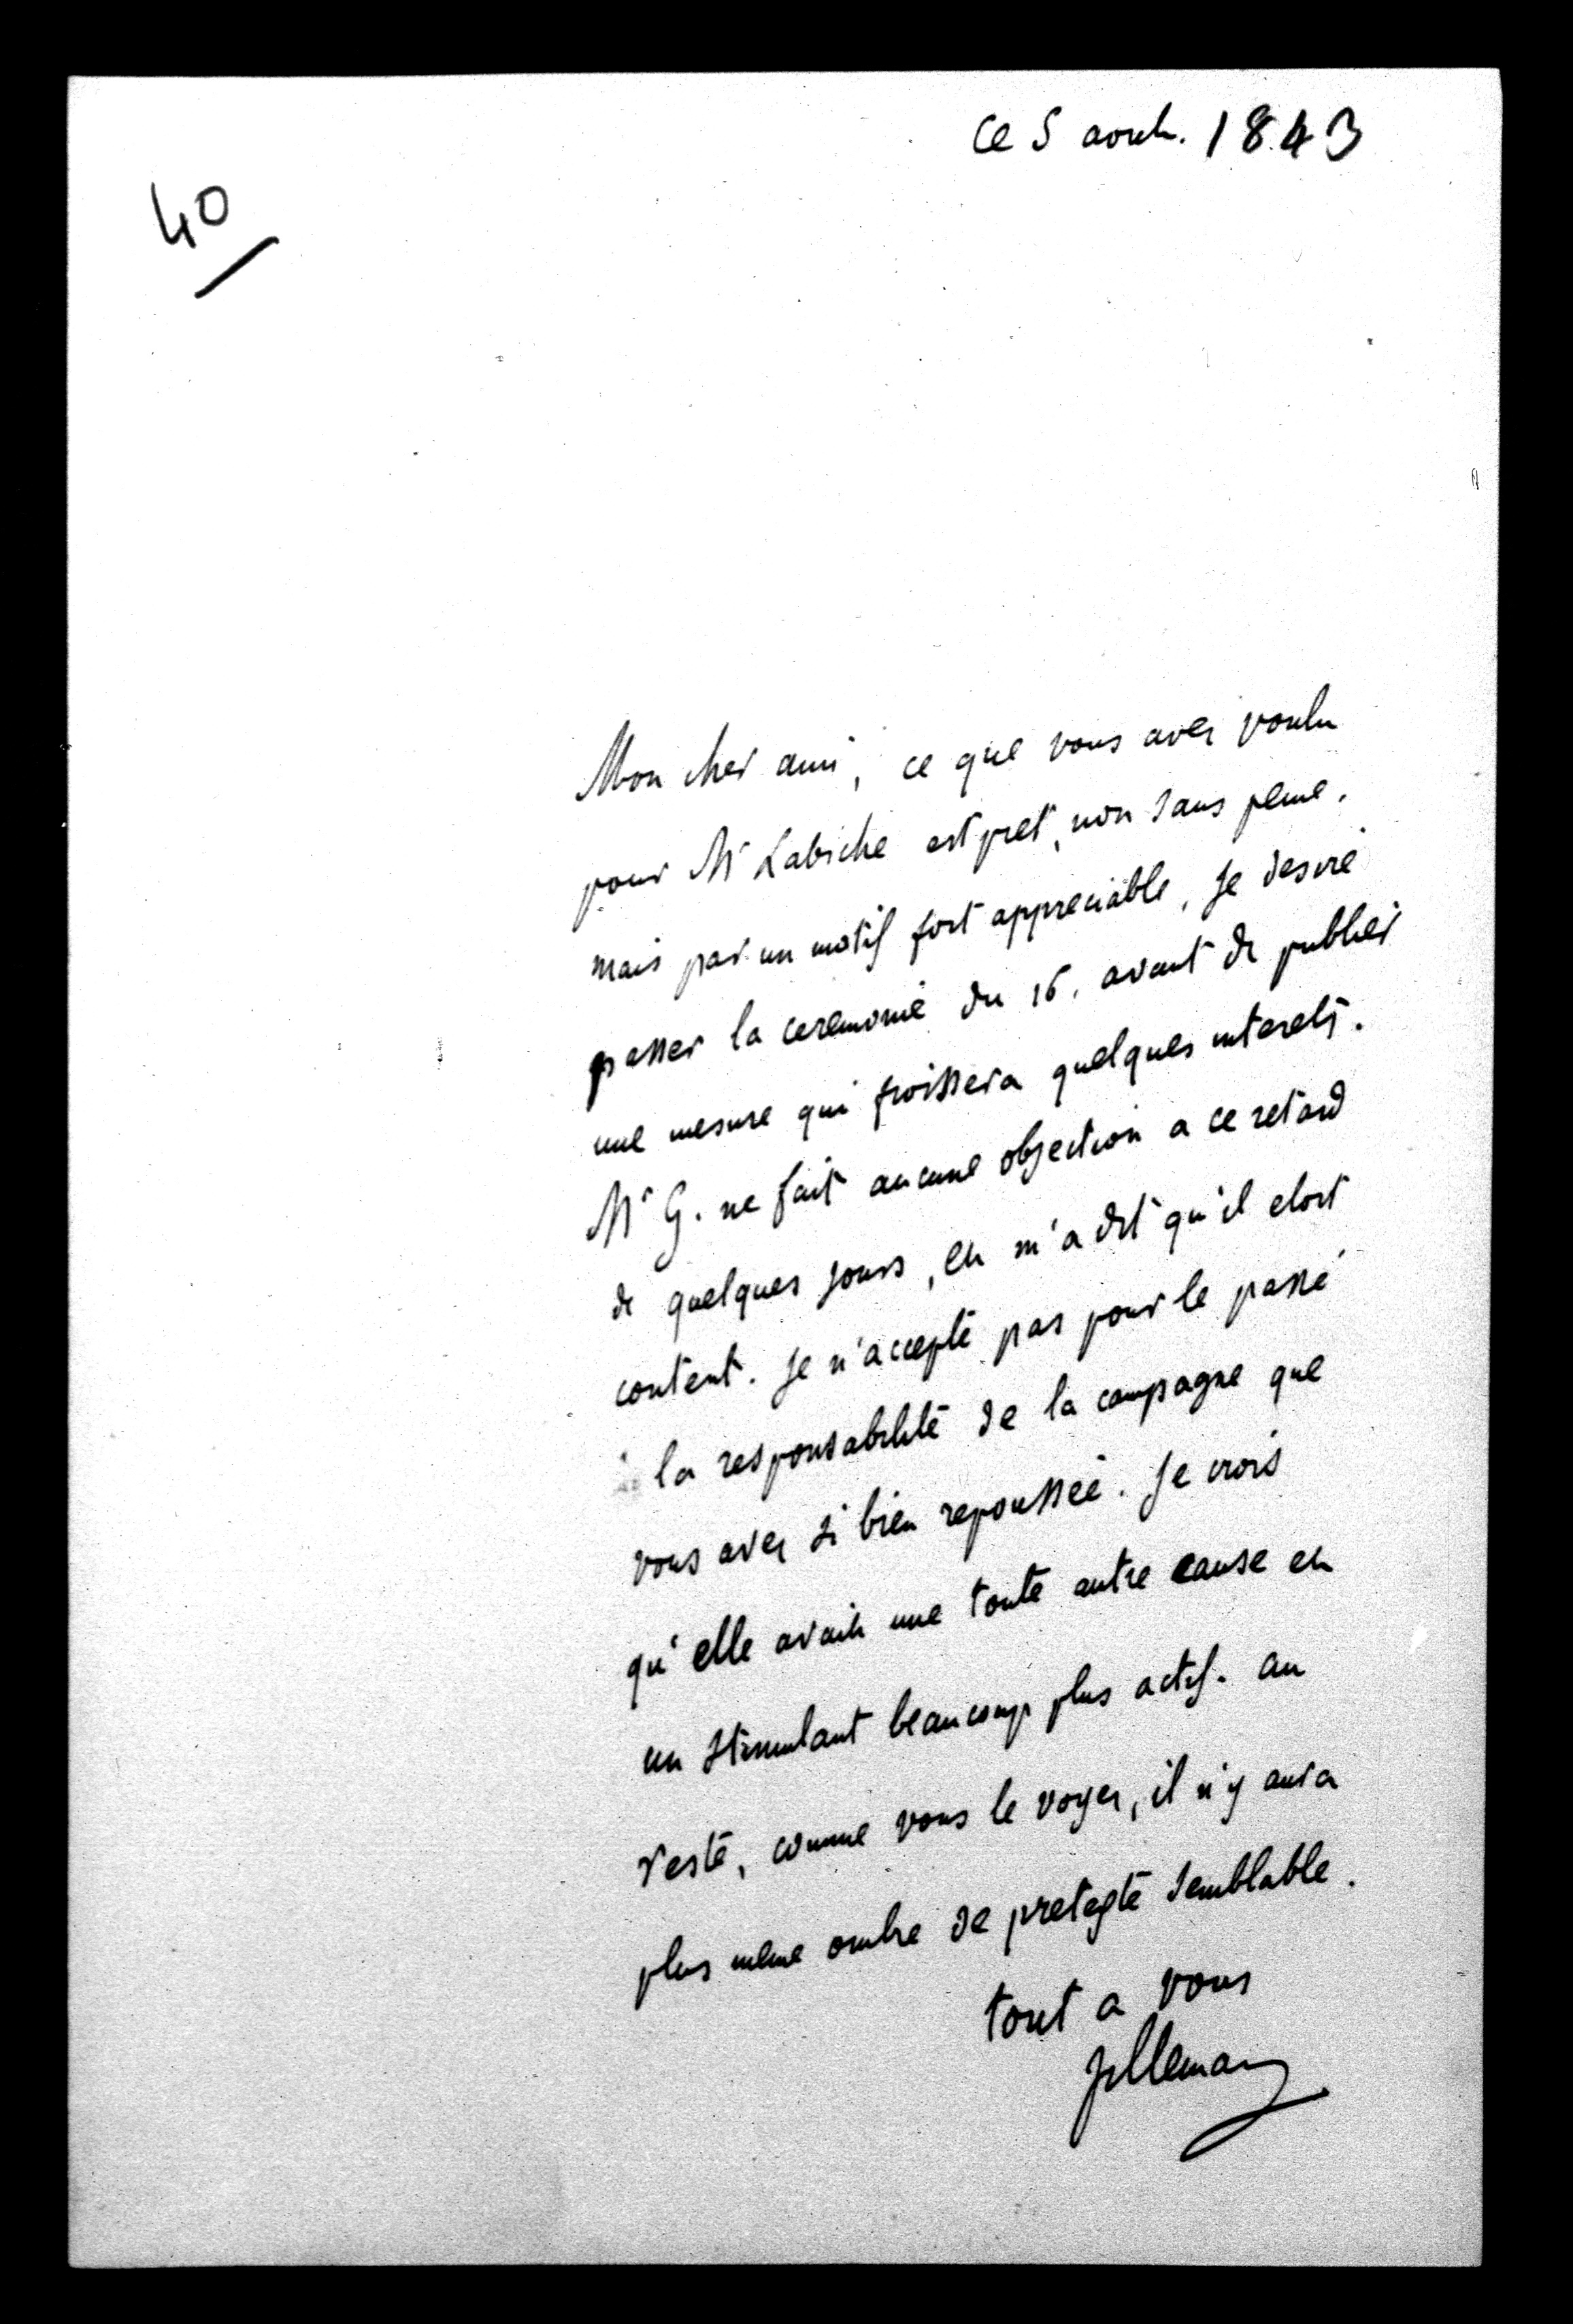 Ce 5 aout. 1843
40
Mon cher ami, ce que vous avez voulu
pour Mr Labiche est pret, non sans peine.
mais par un motif fort appreciable, je desire
passer la ceremonie du 16. avant de publier
une mesure qui froissera quelques interets.
Mr G. ne fait aucune objection a ce retard
de quelques jours, et m'a dit qu'il etoit
content. Je n'accepte pas pour le passé
la responsabilité de la campagne que
vous avez si bien repoussée. Je crois
qu'elle avait une toute autre cause et
un stimulant beaucoup plus actif. au
reste, comme vous le voyez, il n'y aura
plus meme ombre de pretexte semblable.
tout a vous
Villemain